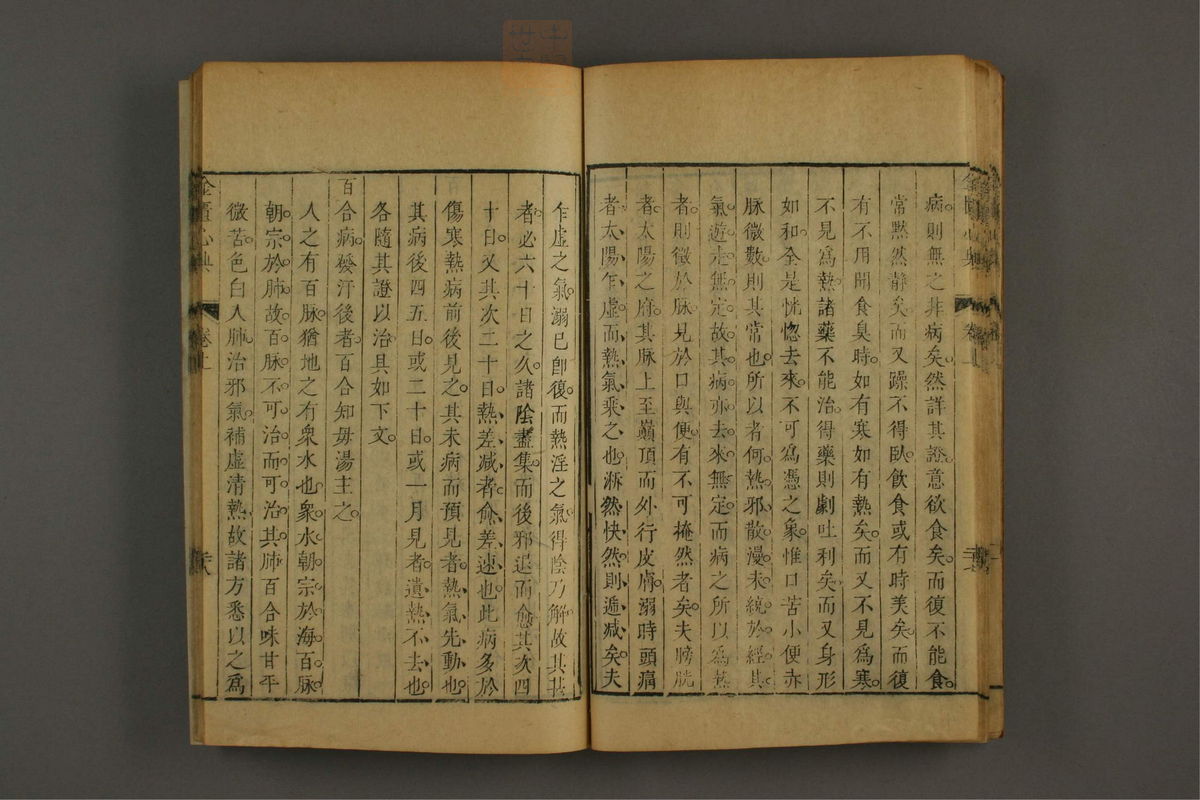 病則無之非病矣然詳其證意欲食矣而復不能食
常默然靜矣而又躁不得臥飲食或有時美矣而復
有不用聞食臭時如有寒如有熱矣而又不見為寒
不見為熱諸藥不能治得藥則劇吐利矣而又身形
如和全是恍惚去來不可為憑之象惟口苦小便赤
脉微數則其常也所以者何熱邪散漫未統於經其
氣遊走無定故其病亦去來無定而病之所以為熱
者則徵於脉見於口與便有不可掩然者矣夫膀胱
者太陽之府其脉上至巔頂而外行皮膚溺時頭痛
者太陽乍虛而熱氣乘之也淅然快然則遞減矣夫
乍虛之氣溺已卽復而熱淫之氣得陰乃解故其甚
者必六十日之久諸陰盡集而後邪退而愈其次四
十日又其次二十日熱差減者愈差速也此病多於
傷寒熱病前後見之其未病而預見者熱氣先動也
其病後四五日或二十日或一月見者遺熱不去也
各隨其證以治具如下文
百合病發汗後者百合知毋湯主之
人之有百脉猶地之有衆水也衆水朝宗於海百脉
朝宗於肺故百脉不可治而可治其肺百合味甘平
微苦色白入肺治邪氣補虛清熱故諸方悉以之為
金匱心典
卷上